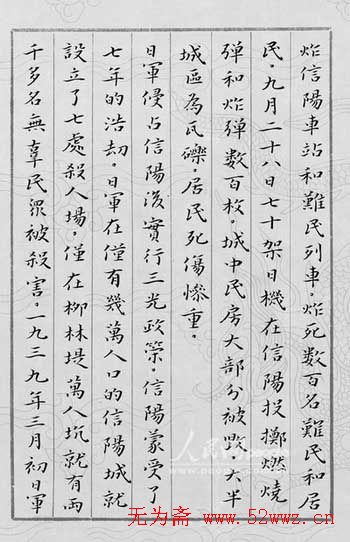 炸信陽車站和難民列車。炸死数百名難民和居
民。九月二十八日七十架日機在信陽投擲燃燒
弹和炸弹数百枚。城中民房大部分被毁。大半
城區為瓦礫。居民死傷慘重。
日軍侵占信陽後實行三光政策。信陽蒙受了
七年的浩劫。日軍在僅有幾萬人口的信陽城就
設立了七處殺人場。僅在柳林堤萬人坑就有两
千多名無辜民眾被殺害。一九三九年三月初日軍
无为斋 www.52wwz.cn